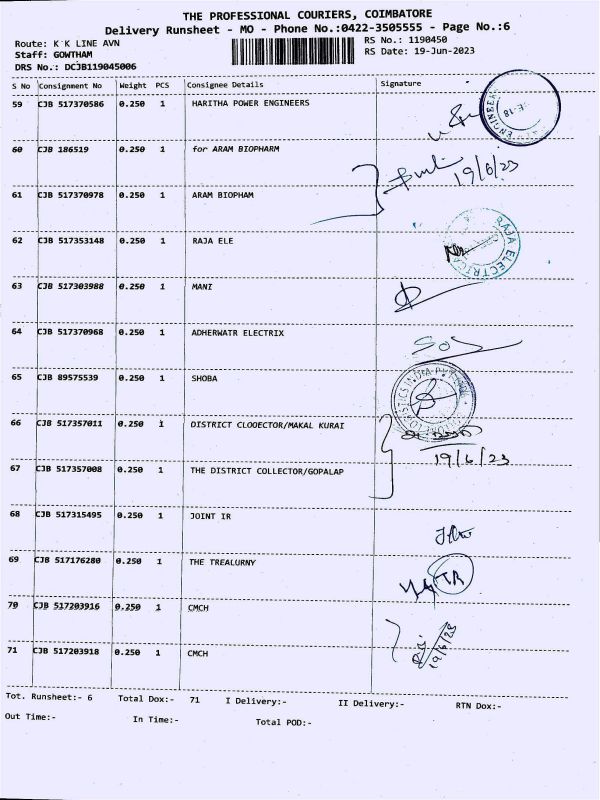 THE PROFESSIONAL COURIERS, COIMBATORE
Delivery Runsheet - MO - Phone No.:0422-3505555 - Page No.:6
Route: K K LINE AVN
RS No.: 1190450
Staff: GOWTHAM
RS Date: 19-Jun-2023
DRS No.: DCJB119045006
S No Consignment No Weight PCS Consignee Details Signature
59 CJB 517370586 0.250 1 HARITHA POWER ENGINEERS
60 CJB 186519 0.250 1 for ARAM BIOPHARM
19/6/23
61 CJB 517370978 0.250 1 ARAM BIOPHAM
62 CJB 517353148 0.250 1 RAJA ELE
RAJA ELECTRICA
63 CJB 517303988 0.250 1 MANI
64 CJB 517370968 0.250 1 ADHERWATR ELECTRIX
65 CJB 89575539 0.250 1 SHOBA
66 CJB 517357011 0.250 1 DISTRICT CLOOECTOR/MAKAL KURAI
19/6/23
67 CJB 517357008 0.250 1 THE DISTRICT COLLECTOR/GOPALAP
68 CJB 517315495 0.250 1 JOINT IR
69 CJB 517176280 0.250 1 THE TREALURNY
TR
70 CJB 517203916 0.250 1 CMCH
19/6/23
71 CJB 517203918 0.250 1 CMCH
Tot. Runsheet:- 6 Total Dox:- 71 I Delivery:- II Delivery:- RTN Dox:-
Out Time:- In Time:- Total POD:-